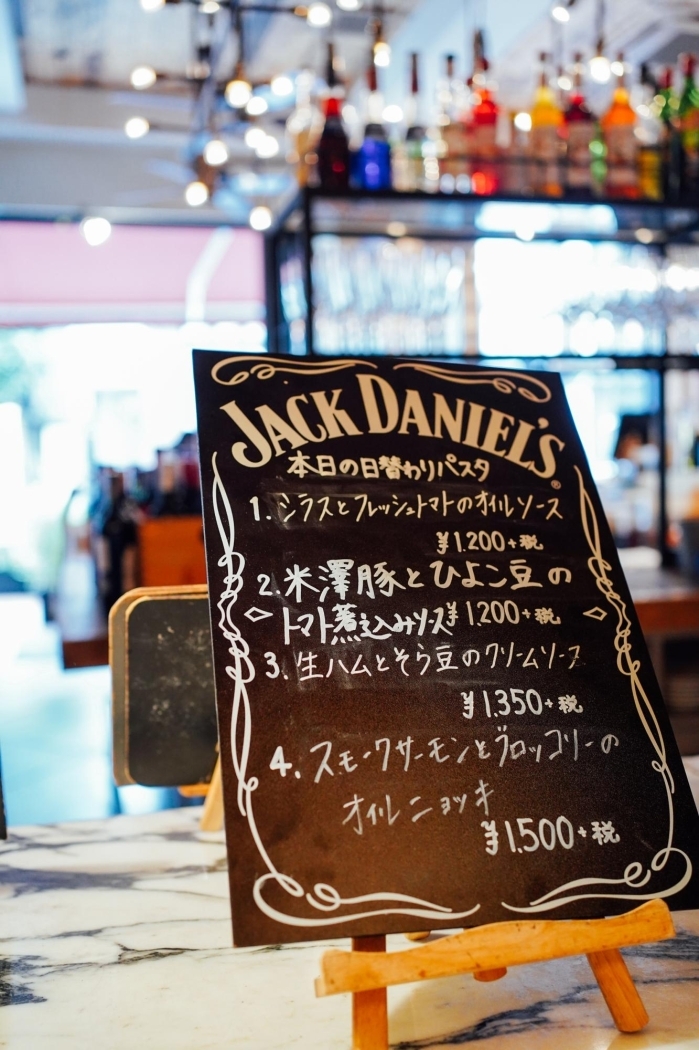 JACK DANIEL'S®
本日の日替わりパスタ
1. シラスとフレッシュトマトのオイルソース
¥1.200+税
2. 米澤豚とひよこ豆の
トマト煮込みソース ¥1.200+税
3. 生ハムとそら豆のクリームソース
¥1.350+税
4. スモークサーモンとブロッコリーの
オイルニョッキ
¥1.500+税